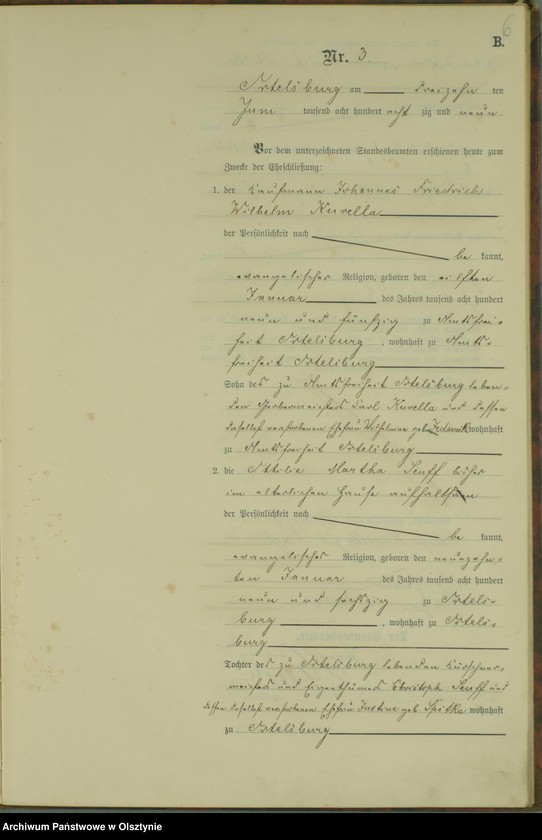 6
B.
Nr. 3
Ortelsburg am dreizehn ten
Juni tausend acht hundert acht zig und neun
Vor dem unterzeichneten Standesbeamten erschienen heute zum
Zwecke der Eheschließung:
1. der Kaufmann Johannes Friedrich
Wilhelm Kurella
der Persönlichkeit nach
be kannt,
evangelischer Religion, geboren den eilften
Januar des Jahres tausend acht hundert
neun und fünfzig zu Amtsfrei-
heit Ortelsburg, wohnhaft zu Amts-
freiheit Ortelsburg
Sohn des zu Amtsfreiheit Ortelsburg leben-
den Gerbermeisters Carl Kurella und dessen
daselbst verstorbenen Ehefrau Wilhelmine geb. wohnhaft
zu Amtsfreiheit Ortelsburg
2. die Ottilie Martha Senff bisher
im elterlichen Hause aufhaltsam
der Persönlichkeit nach
be kannt,
evangelischer Religion, geboren den neunzehn-
ten Januar des Jahres tausend acht hundert
neun und sechszig zu Ortels-
burg, wohnhaft zu Ortels-
burg
Tochter des zu Ortelsburg lebenden Kürschner-
meisters und Eigenthümers Christoph Senff und
dessen daselbst verstorbenen Ehefrau Justine geb. Spitka wohnhaft
zu Ortelsburg
Archiwum Państwowe w Olsztynie